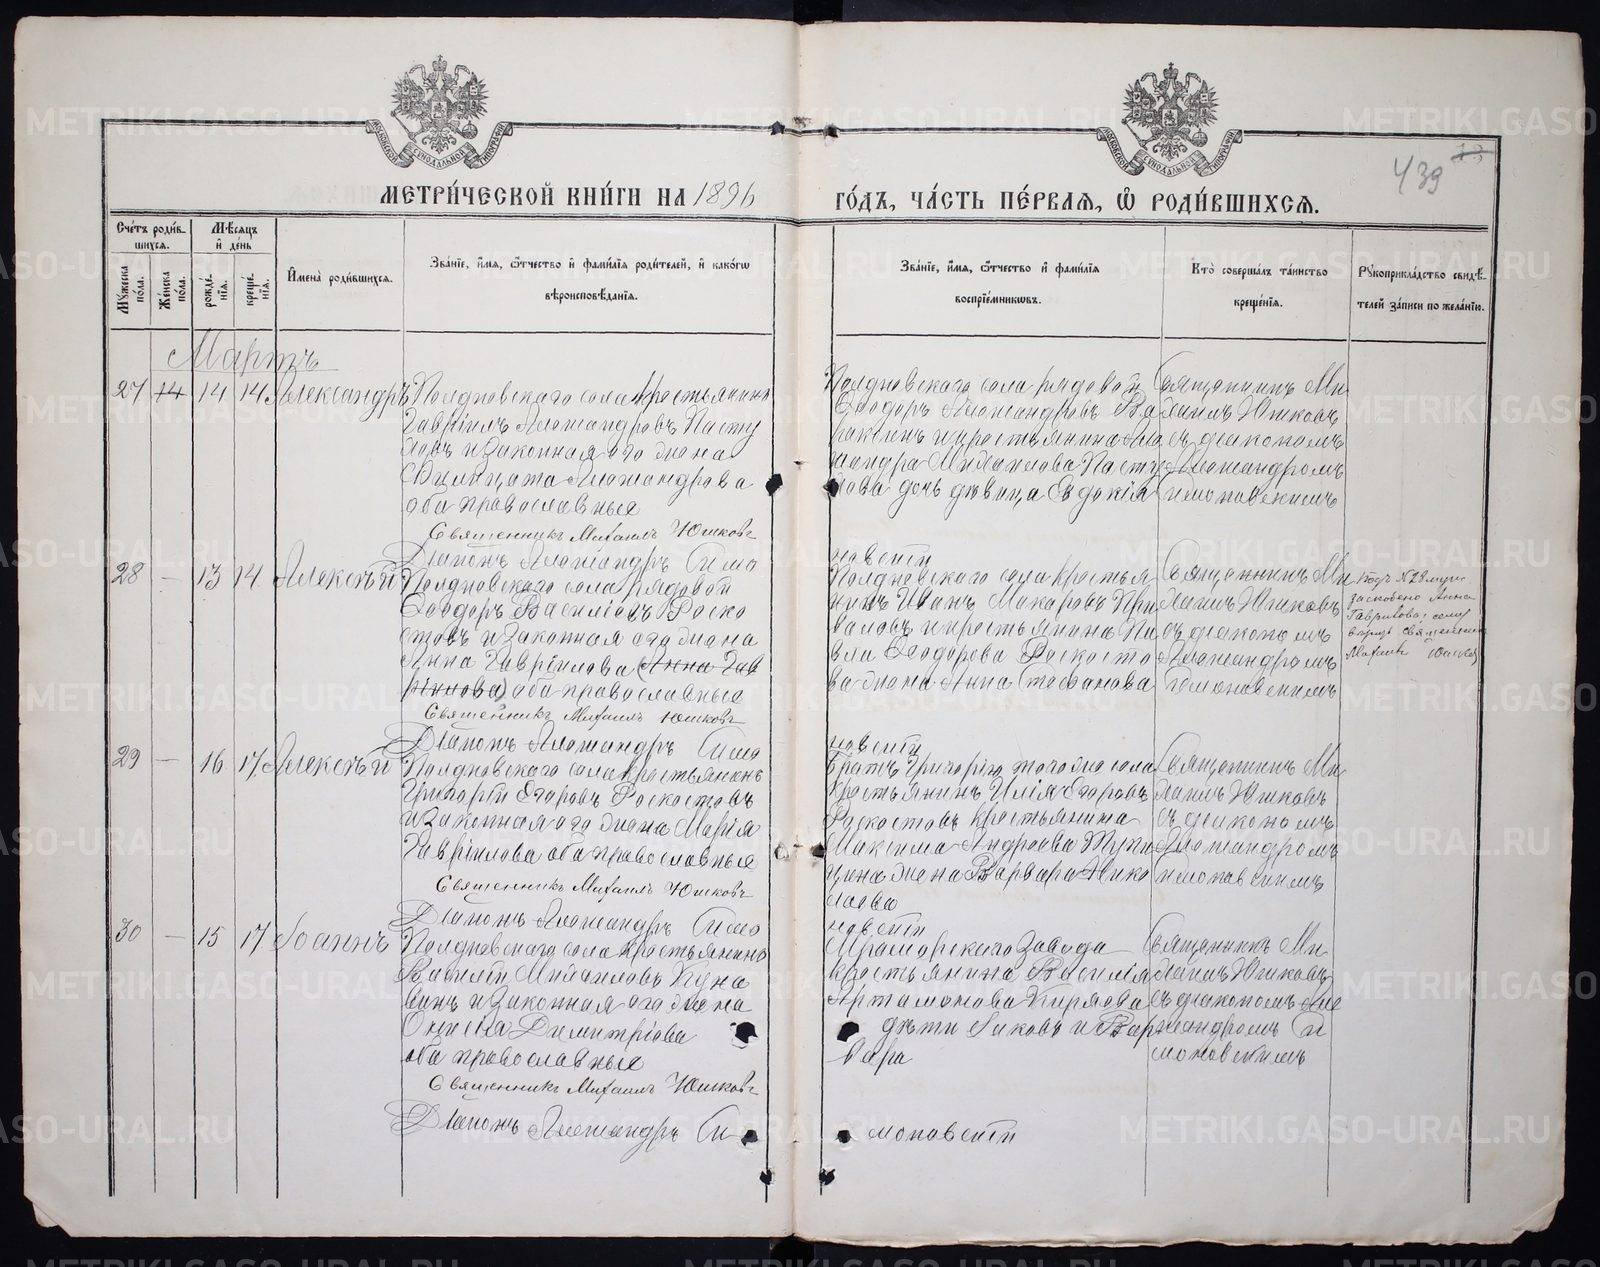 МЕТРИ́ЧЕСКОЙ КНИ́ГИ НА 1896 ГО́ДЪ, ЧА́СТЬ ПЕ́РВАЯ, Ѡ РОДИ́ВШИХСЯ.
439
Сче́тъ роди́в-
шихся.
Мѣ́сяцъ
и де́нь
Му́жеска по́ла.
Же́нска по́ла.
рожде́-
нія.
креще́-
нія.
Имена̀ роди́вшихся.
Зва́ніе, и́мя, ѻ́тчество и фами́лія роди́телей, и како́гѡ
вѣроисповѣ́данія.
Зва́ніе, и́мя, ѻ́тчество и фами́лія
воспріе́мникѡвъ.
Кто̀ соверша́лъ та́инство
креще́нія.
Рꙋкоприкла́дство свидѣ́-
телей за́писи по жела́нію.
Мартъ
27 14 14 14 Александръ
Полдневскаго села крестьянинъ
Гавріилъ Александровъ Пасту
ховъ и законная его жена
Александрова
оба православные
Священникъ Михаилъ Юшковъ
Діаконъ Александръ Симо
новскій
Полдневскаго села рядовой
Ѳеодоръ Александровъ
и крестьянина Але
ксандра Михаилова Пасту
хова дочь дѣвица Евдокія
Священникъ Ми
хаилъ Юшковъ
съ діакономъ
Александромъ
Симоновскимъ
28 — 13 14 Алексѣй
Полдневскаго села рядовой
Ѳеодоръ Василіевъ Роско
стовъ и законная его жена
Анна Гавріилова (Анна Гав
ріилова) оба православные
Священникъ Михаилъ Юшковъ
Діаконъ Александръ Симо
новскій
Полдневскаго села крестья
нинъ Иванъ Макаровъ При
валовъ и крестьянина Па
вла Ѳеодорова Роскосто
ва жена Анна Стефанова
Священникъ Ми
хаилъ Юшковъ
съ діакономъ
Александромъ
Симоновскимъ
Подъ №28
Анна
Гаврилова;
Священникъ
Михаилъ Юшковъ
29 — 16 17 Алексѣй
Полдневскаго села крестьянинъ
Григорій Егоровъ Роскостовъ
и законная его жена Марія
Гавріилова оба православные
Священникъ Михаилъ Юшковъ
Діаконъ Александръ Симо
новскій
Братъ Григорію того же села
крестьянинъ Илія Егоровъ
Роскостовъ крестьянина
Максима Андреева Тупи
цина жена Варвара Нико
лаева
Священникъ Ми
хаилъ Юшковъ
съ діакономъ
Александромъ
Симоновскимъ
30 — 15 17 Іоаннъ
Полдневскаго села крестьянинъ
Василій Михаиловъ Куна
винъ и законная его жена
Димитріова
оба православные
Священникъ Михаилъ Юшковъ
Діаконъ Александръ Си
моновскій
Мраморскаго завода
крестьянина Василія
Артамонова Киряева
дѣти Іаковъ и Вар
вара
Священникъ Ми
хаилъ Юшковъ
съ діакономъ Але
ксандромъ Си
моновскимъ
METRIKI.GASO-URAL.RU